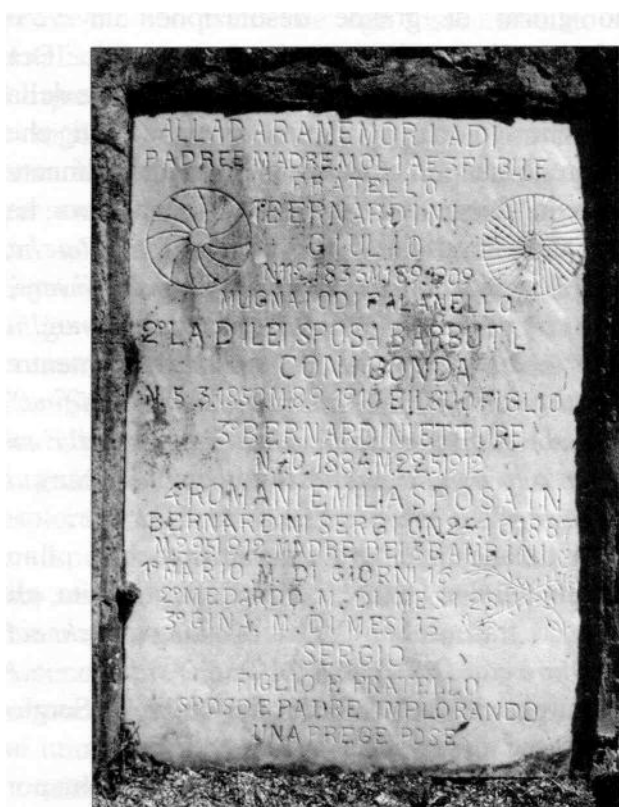 ALLA DARA MEMORIA DI
PADRE E MADRE MOLIAE3FIBLIE
FRATELLO
1BERNARDINI
GIULIO
MUGNAIO DI FALANELLO
2° LA DI LEI SPOSA BARBUTI L
CONIGONDA
N. 5. 3. 1850 M. 8.9. 1910 E IL SUO FIGLIO
3° BERNARDINI ETTORE
1884 M 22 5 1912
4° ROMANI EMILIA SPOSA IN
BERNARDINI SERGIO N. 24.10.1987
M. 29 5 1912. MADRE DEI 3 BAMBINI
1° MARIO M. DI GIORNI 16
2° MEDARDO. M. DI MESI 29
3° GINA. M. DI MESI 13
SERGIO
FIGLIO E FRATELLO
SPOSO E PADRE IMPLORANDO
UNA PREGE POSE